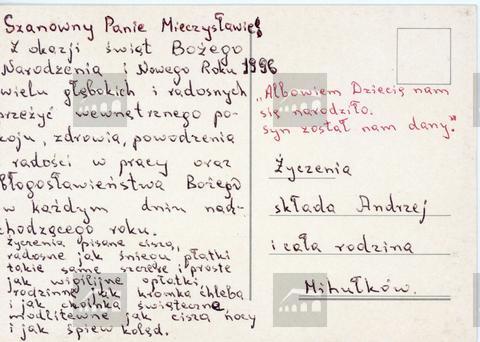 Szanowny Panie Mieczysławie!
Z okazji świąt Bożego
Narodzenia i Nowego Roku 1996
wielu głębokich i radosnych
przeżyć wewnętrznego po-
koju, zdrowia, powodzenia
i radości w pracy oraz
błogosławieństwa Bożego
w każdym dniu nad-
chodzącego roku.
Życzenia pisane ciszą,
radosne jak śniegu płatki
takie same szczere i proste
jak wigilijne opłatki
rodzinne jak kromka chleba
i jak choinka świąteczna
modlitewne jak cisza nocy
i jak śpiew kolęd.
„Albowiem Dziecię nam
się narodziło.
syn został nam dany."
Życzenia
składa Andrzej
i cała rodzina
Mihułków.